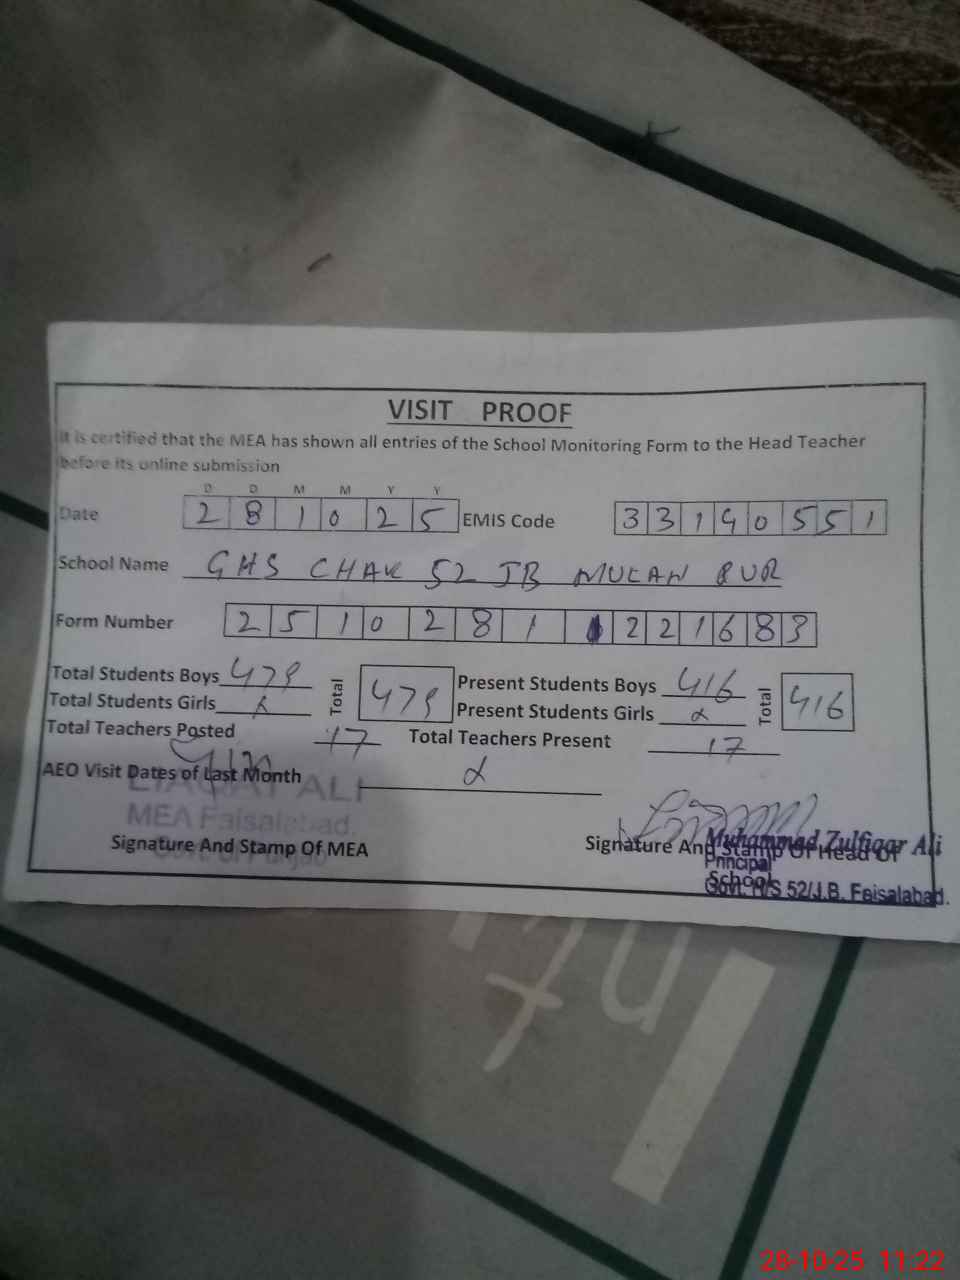 VISIT PROOF
It is certified that the MEA has shown all entries of the School Monitoring Form to the Head Teacher
before its online submission
D D M M Y Y
Date 2 8 1 0 2 5 EMIS Code 3 3 1 9 0 5 5 1
School Name GHS CHAK 52 JB MUKAN PUR
Form Number 2 5 1 0 2 8 1 1 2 2 1 6 8 3
Total Students Boys 479 Total 479 Present Students Boys 416 Total 416
Total Students Girls Present Students Girls
Total Teachers Posted 17 Total Teachers Present 17
AEO Visit Dates of Last Month
LIAQAT ALI
MEA Faisalabad.
Govt. of Punjab
Signature And Stamp Of MEA
Signature And Stamp Of Head Of
School
Muhammad Zulfiqar Ali
Principal
Govt. H/S 52/J.B. Faisalabad.
28-10-25 11:22